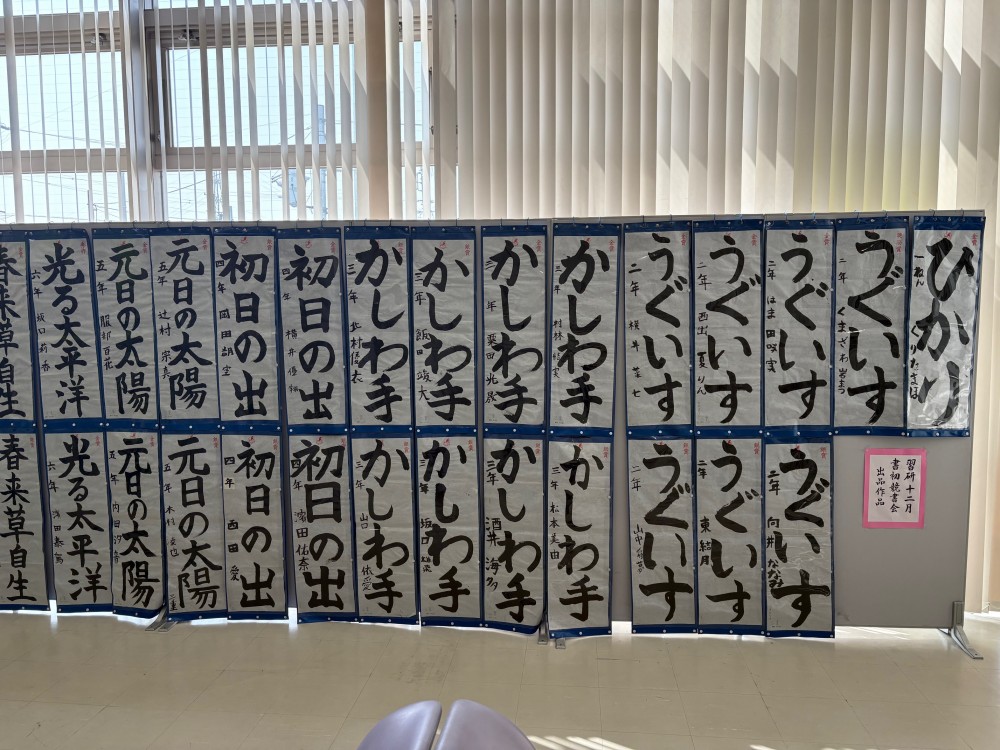 ひかり
一ねん
うぐいす
二年
くまざわ
うぐいす
二年
はま田
うぐいす
二年
西出 夏りん
うぐいす
二年
横井
かしわ手
三年
村林
かしわ手
三年
栗田
かしわ手
三年
飯田 竣大
かしわ手
三年
北村
初日の出
四年
横井 優
初日の出
四年
岡田
元日の太陽
五年
辻村
元日の太陽
五年
服部
光る太平洋
六年
坂口 莉香
春来草自生
習研十二月
書初競書会
出品作品
うぐいす
二年
向井 ななな
うぐいす
二年
東 結月
うぐいす
二年
山中
かしわ手
三年
松本 美由
かしわ手
三年
酒井 海夕
かしわ手
三年
坂口
かしわ手
三年
山口 依愛
初日の出
四年
濱田 佑奈
初日の出
四年
西田 愛
元日の太陽
五年
木村
元日の太陽
五年
内田 汐音
光る太平洋
六年
春来草自生